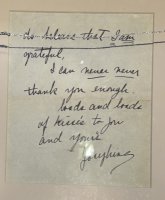 so believe that I am
grateful,
I can never never
thank you enough.
loads and loads
of kissie to you
and yours
Josephine